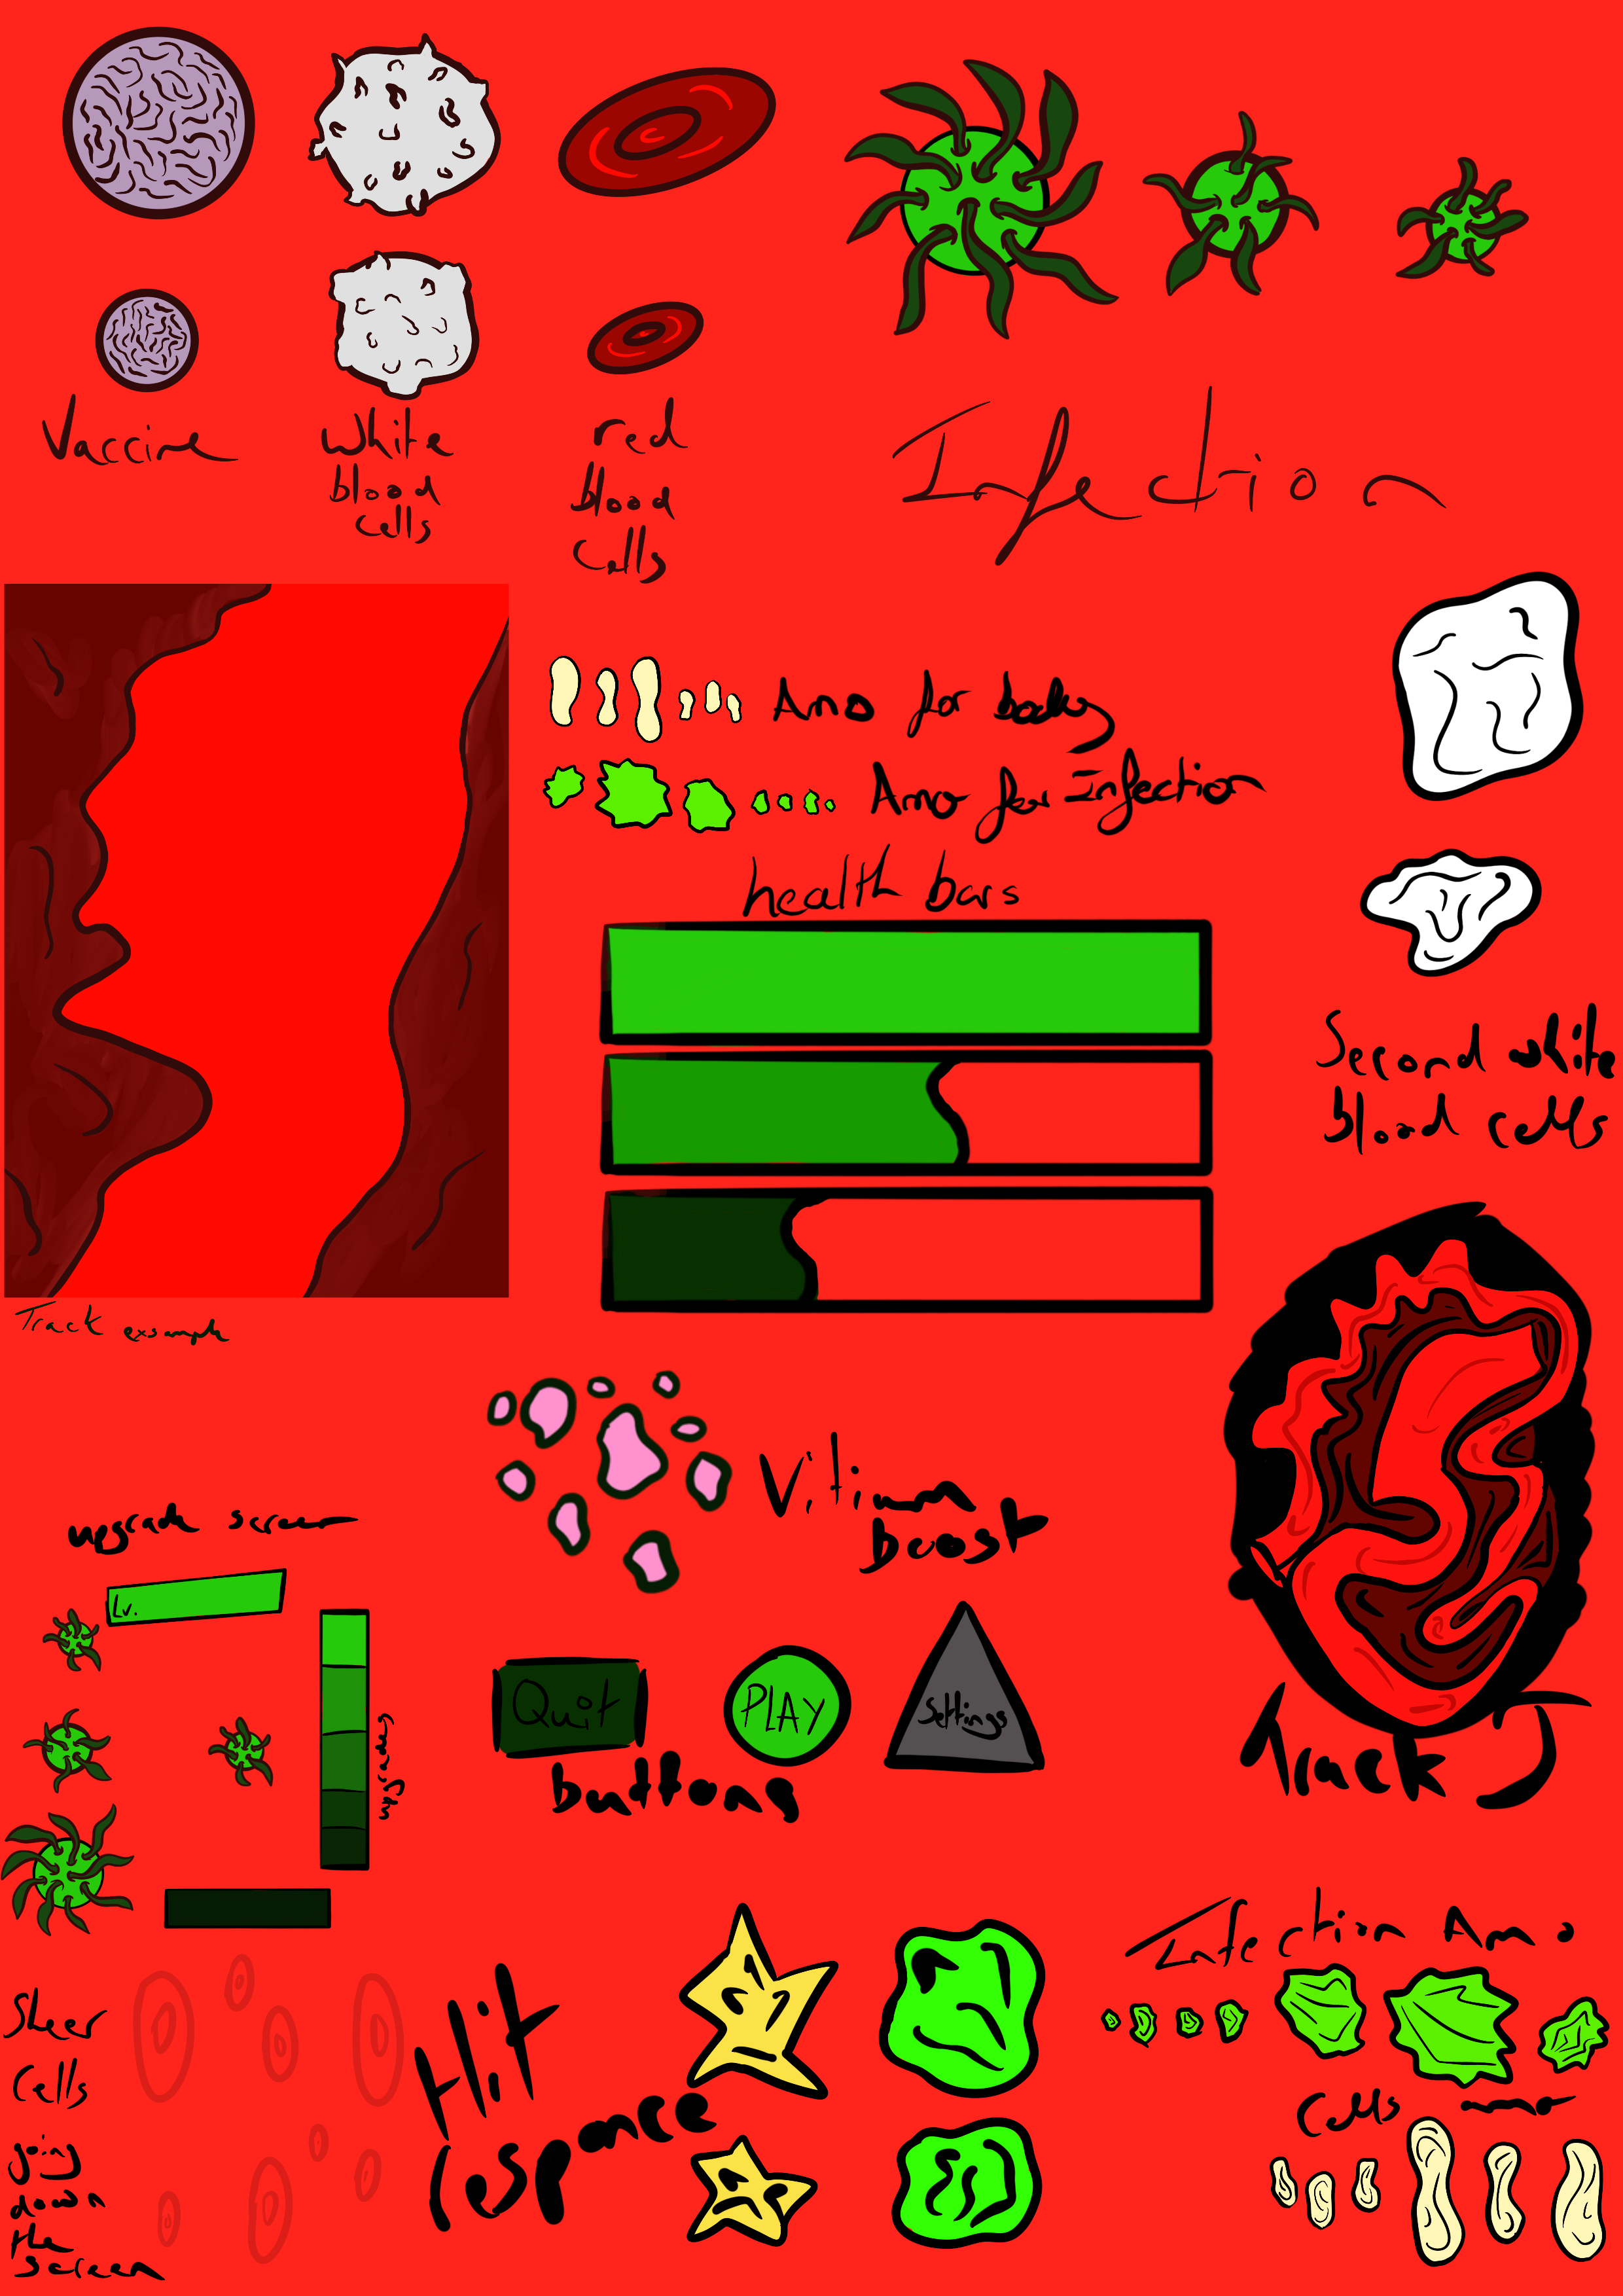 Vaccine
White
blood
cells
red
blood
cells
Infection
Amo for body
Amo for Infection
health bars
Second white
blood cells
Track exsample
Vitiumn
boost
upgrade screen
Lv.
upgrades
Quit
PLAY
Settings
buttons
Track
Infection Amo
Sheer
cells
going
down
the
screen
Hit
responce
Cells amo